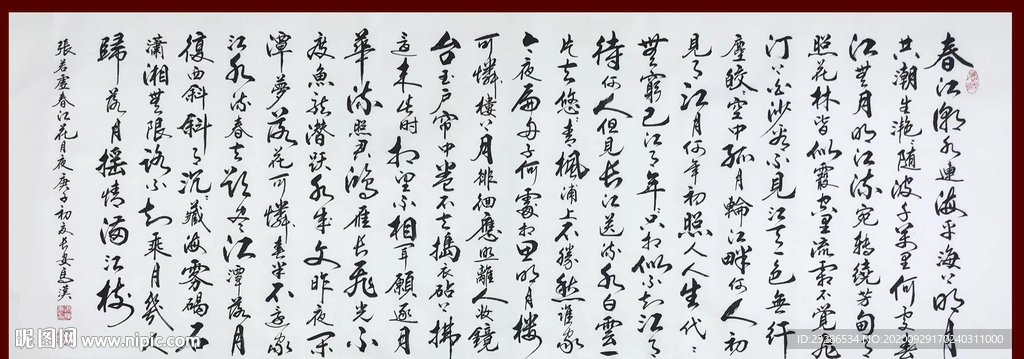 春江潮水連海平海上明月
共潮生灩灩隨波千萬里何處春
江無月明江流宛轉繞芳甸月
照花林皆似霰空里流霜不覺飛
汀上白沙看不見江天一色無纖
塵皎皎空中孤月輪江畔何人初
見月江月何年初照人人生代代
無窮已江月年年只相似不知江月
待何人但見長江送流水白雲一
片去悠悠青楓浦上不勝愁誰家
今夜扁舟子何處相思明月樓
可憐樓上月徘徊應照離人妝鏡
台玉戶帘中卷不去搗衣砧上拂
還來此時相望不相聞願逐月
華流照君鴻雁長飛光不
度魚龍潛躍水成文昨夜閑
潭夢落花可憐春半不還家
江水流春去欲盡江潭落月
復西斜斜月沉沉藏海霧碣石
瀟湘無限路不知乘月幾人
歸落月搖情滿江樹
張若虛春江花月夜庚子初夏長安
昵图网 www.nipic.com